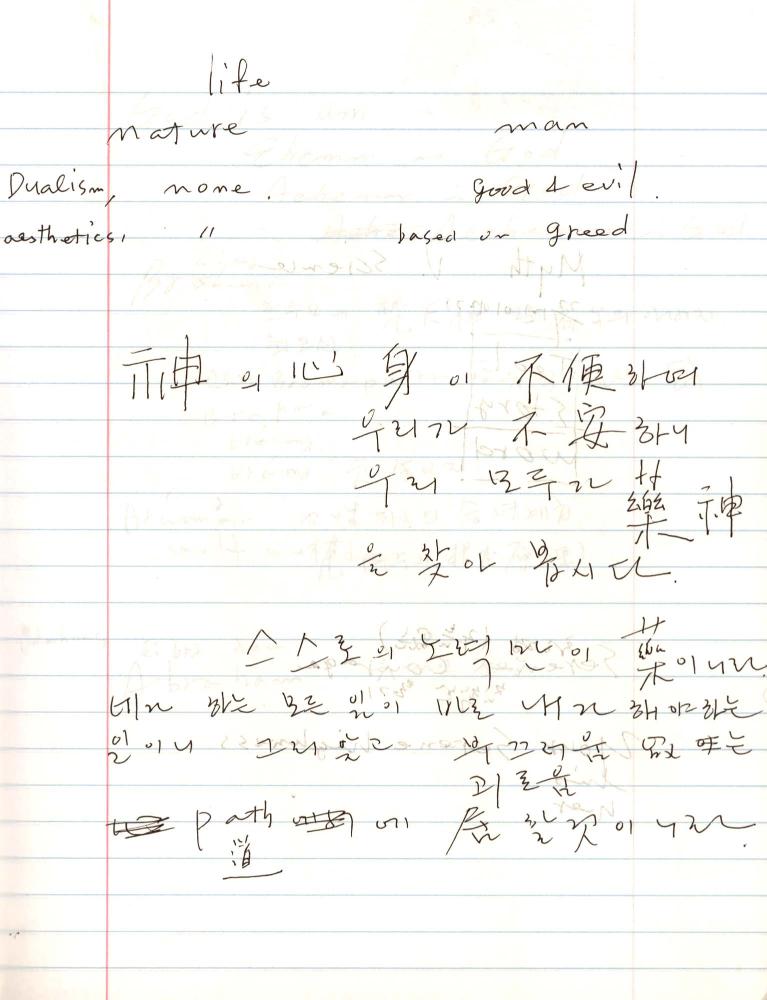 life
nature man
Dualism, none. good & evil.
aesthetics, " based on greed
神의 心 身이 不便하여
우리가 不安하니
우리 모두가 藥神
을 찾아 봅시다.
스스로의 노력만이 藥이니라
네가 하는 모든 일이 바로 내가 해야하는
일이니 그리 알고 부끄러움 없는
괴로움
path 에 居할것이니라.
道